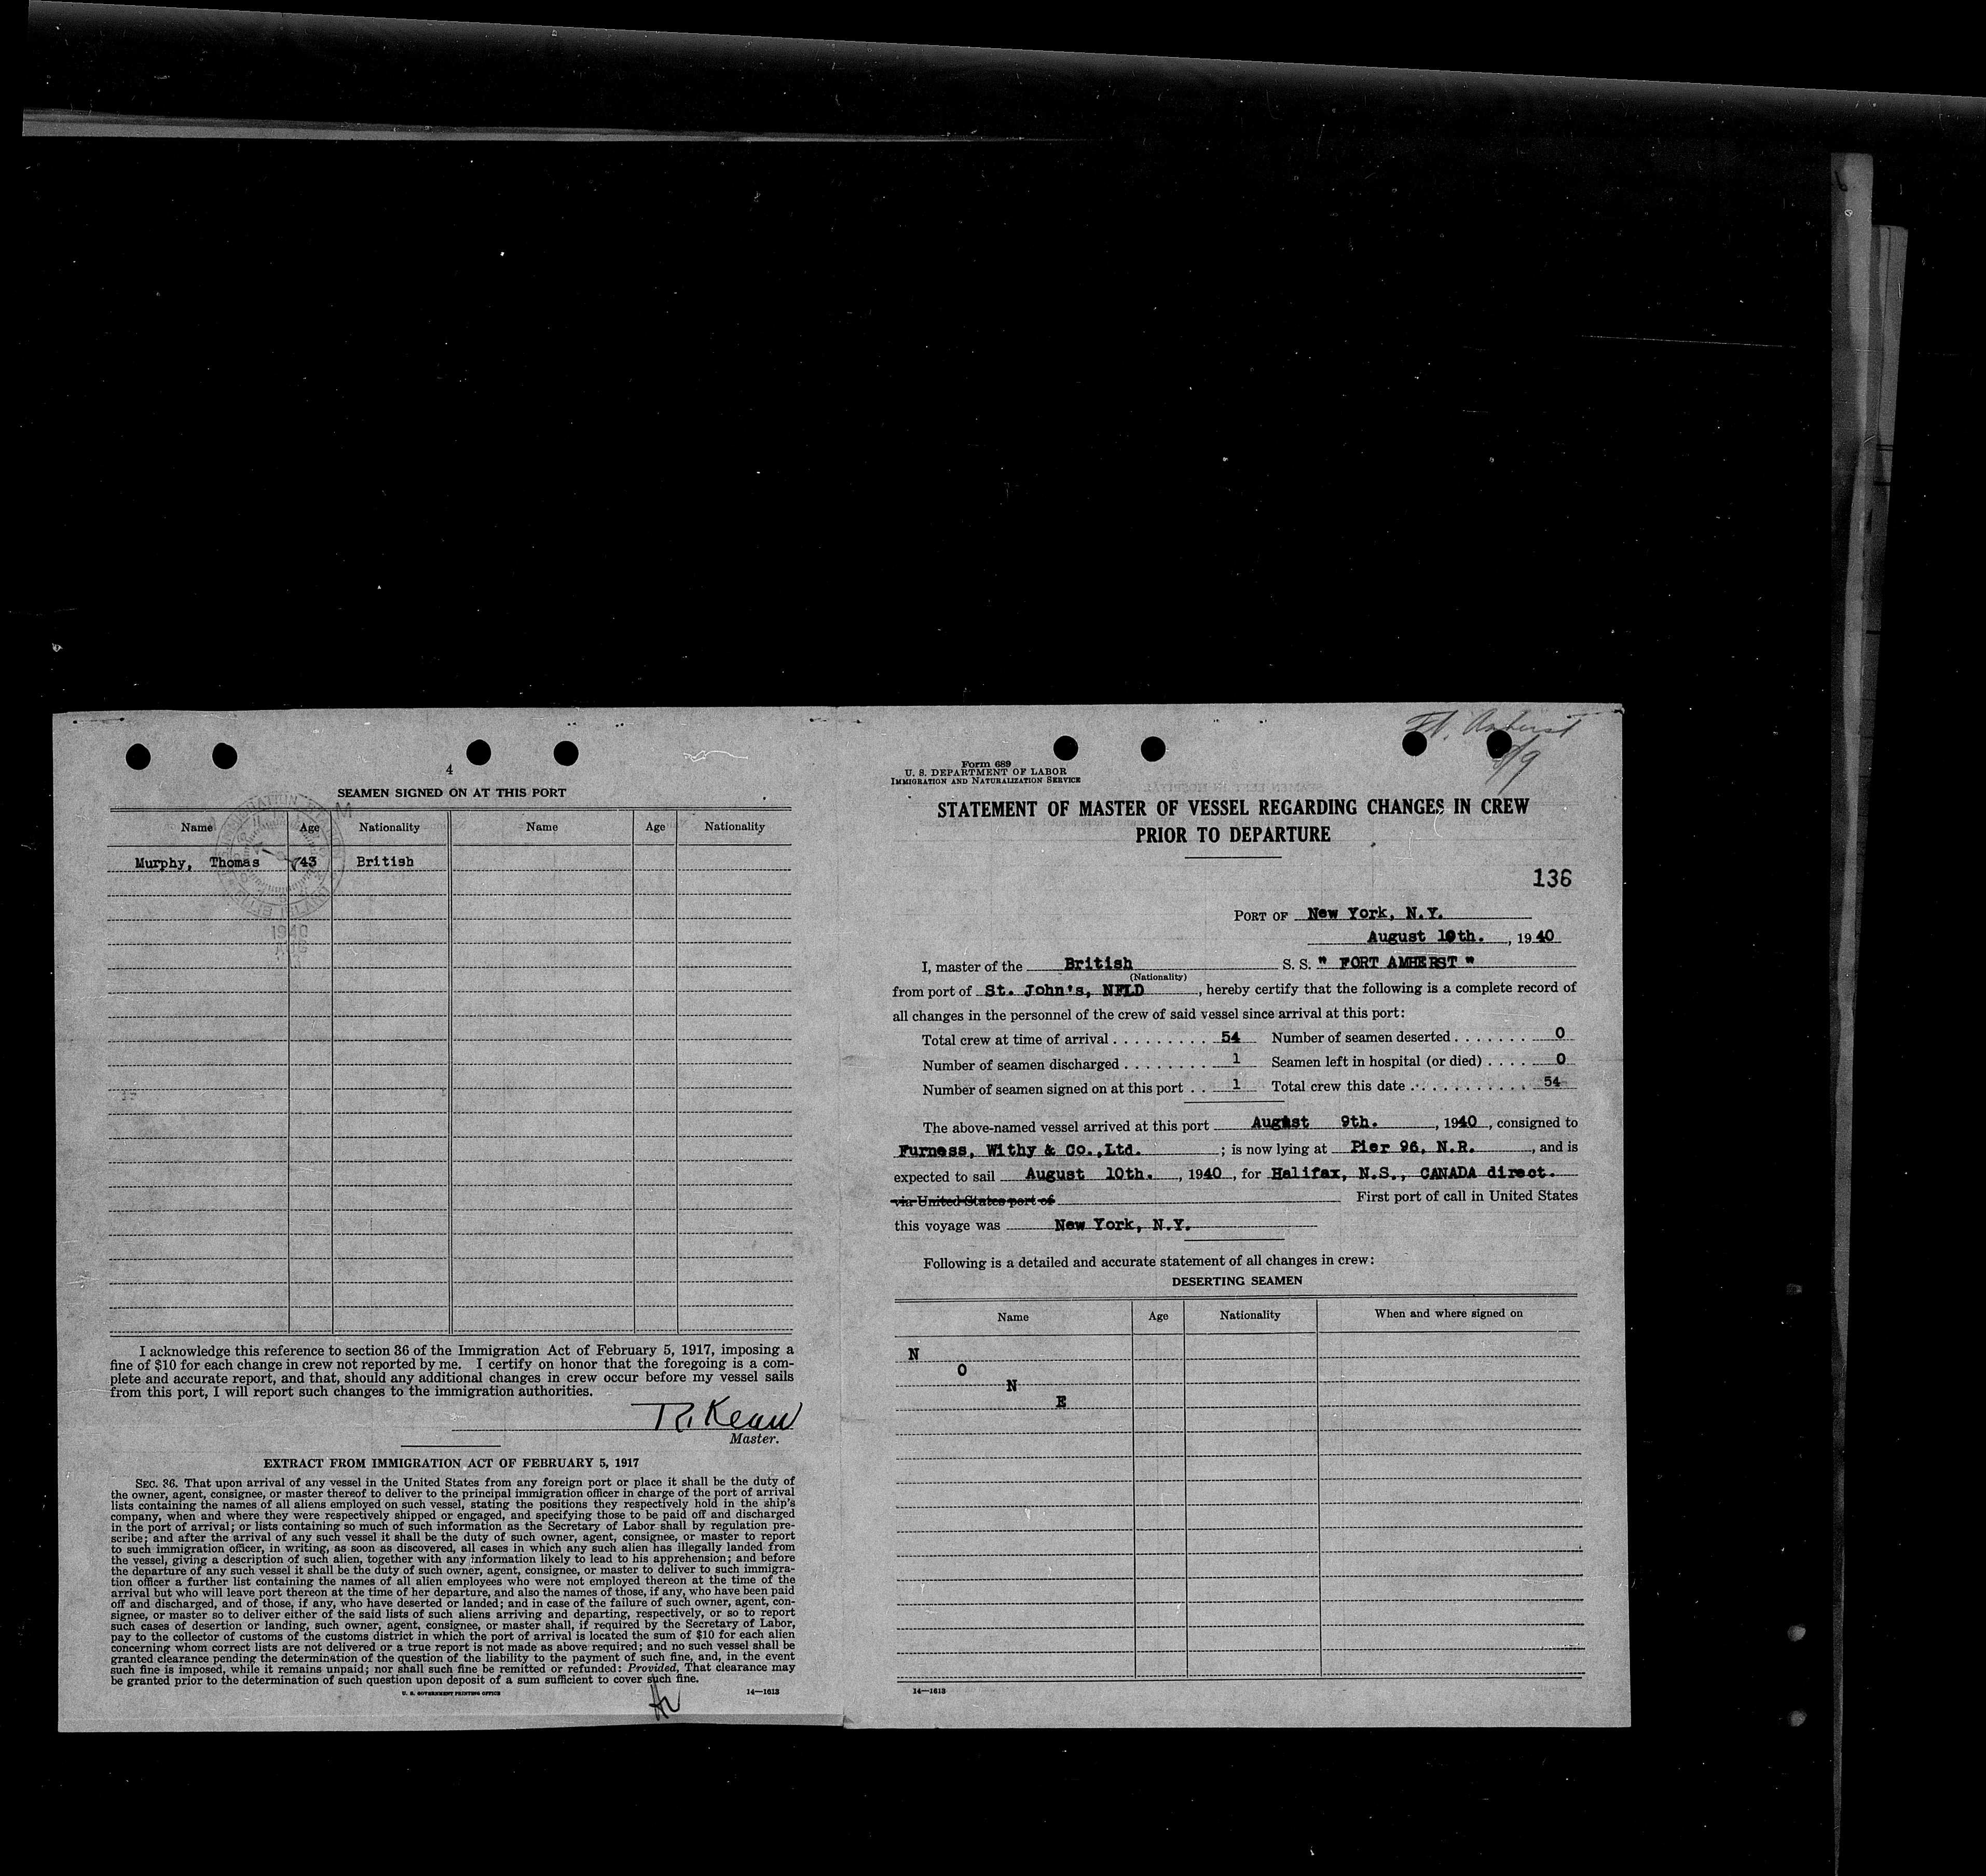 4
SEAMEN SIGNED ON AT THIS PORT
Name Age Nationality Name Age Nationality
Murphy, Thomas 43 British
1940
I acknowledge this reference to section 36 of the Immigration Act of February 5, 1917, imposing a
fine of $10 for each change in crew not reported by me. I certify on honor that the foregoing is a com-
plete and accurate report, and that, should any additional changes in crew occur before my vessel sails
from this port, I will report such changes to the immigration authorities.
R. Kean
Master.
EXTRACT FROM IMMIGRATION ACT OF FEBRUARY 5, 1917
SEC. 36. That upon arrival of any vessel in the United States from any foreign port or place it shall be the duty of
the owner, agent, consignee, or master thereof to deliver to the principal immigration officer in charge of the port of arrival
lists containing the names of all aliens employed on such vessel, stating the positions they respectively hold in the ship's
company, when and where they were respectively shipped or engaged, and specifying those to be paid off and discharged
in the port of arrival; or lists containing so much of such information as the Secretary of Labor shall by regulation pre-
scribe; and after the arrival of any such vessel it shall be the duty of such owner, agent, consignee, or master to report
to such immigration officer, in writing, as soon as discovered, all cases in which any such alien has illegally landed from
the vessel, giving a description of such alien, together with any information likely to lead to his apprehension; and before
the departure of any such vessel it shall be the duty of such owner, agent, consignee, or master to deliver to such immigra-
tion officer a further list containing the names of all alien employees who were not employed thereon at the time of the
arrival but who will leave port thereon at the time of her departure, and also the names of those, if any, who have been paid
off and discharged, and of those, if any, who have deserted or landed; and in case of the failure of such owner, agent, con-
signee, or master so to deliver either of the said lists of such aliens arriving and departing, respectively, or so to report
such cases of desertion or landing, such owner, agent, consignee, or master shall, if required by the Secretary of Labor,
pay to the collector of customs of the customs district in which the port of arrival is located the sum of $10 for each alien
concerning whom correct lists are not delivered or a true report is not made as above required; and no such vessel shall be
granted clearance pending the determination of the question of the liability to the payment of such fine, and, in the event
such fine is imposed, while it remains unpaid; nor shall such fine be remitted or refunded: Provided, That clearance may
be granted prior to the determination of such question upon deposit of a sum sufficient to cover such fine.
U. S. GOVERNMENT PRINTING OFFICE 14—1613
Ft. Amherst
8/9
Form 689
U. S. DEPARTMENT OF LABOR
IMMIGRATION AND NATURALIZATION SERVICE
STATEMENT OF MASTER OF VESSEL REGARDING CHANGES IN CREW
PRIOR TO DEPARTURE
136
PORT OF New York, N.Y.
August 10th. , 1940
I, master of the British S. S. " FORT AMHERST "
(Nationality)
from port of St. John's, NFLD , hereby certify that the following is a complete record of
all changes in the personnel of the crew of said vessel since arrival at this port:
Total crew at time of arrival . . . . . . . . . 54 Number of seamen deserted . . . . . . . 0
Number of seamen discharged . . . . . . . . 1 Seamen left in hospital (or died) . . . . 0
Number of seamen signed on at this port . . 1 Total crew this date . . . . . . . . . . . 54
The above-named vessel arrived at this port August 9th. , 1940 , consigned to
Furness, Withy & Co.,Ltd. ; is now lying at Pier 96, N.R. , and is
expected to sail August 10th. , 1940 , for Halifax, N.S., CANADA direct.
via United States port of First port of call in United States
this voyage was New York, N.Y.
Following is a detailed and accurate statement of all changes in crew:
DESERTING SEAMEN
Name Age Nationality When and where signed on
N
O
N
E
14—1613